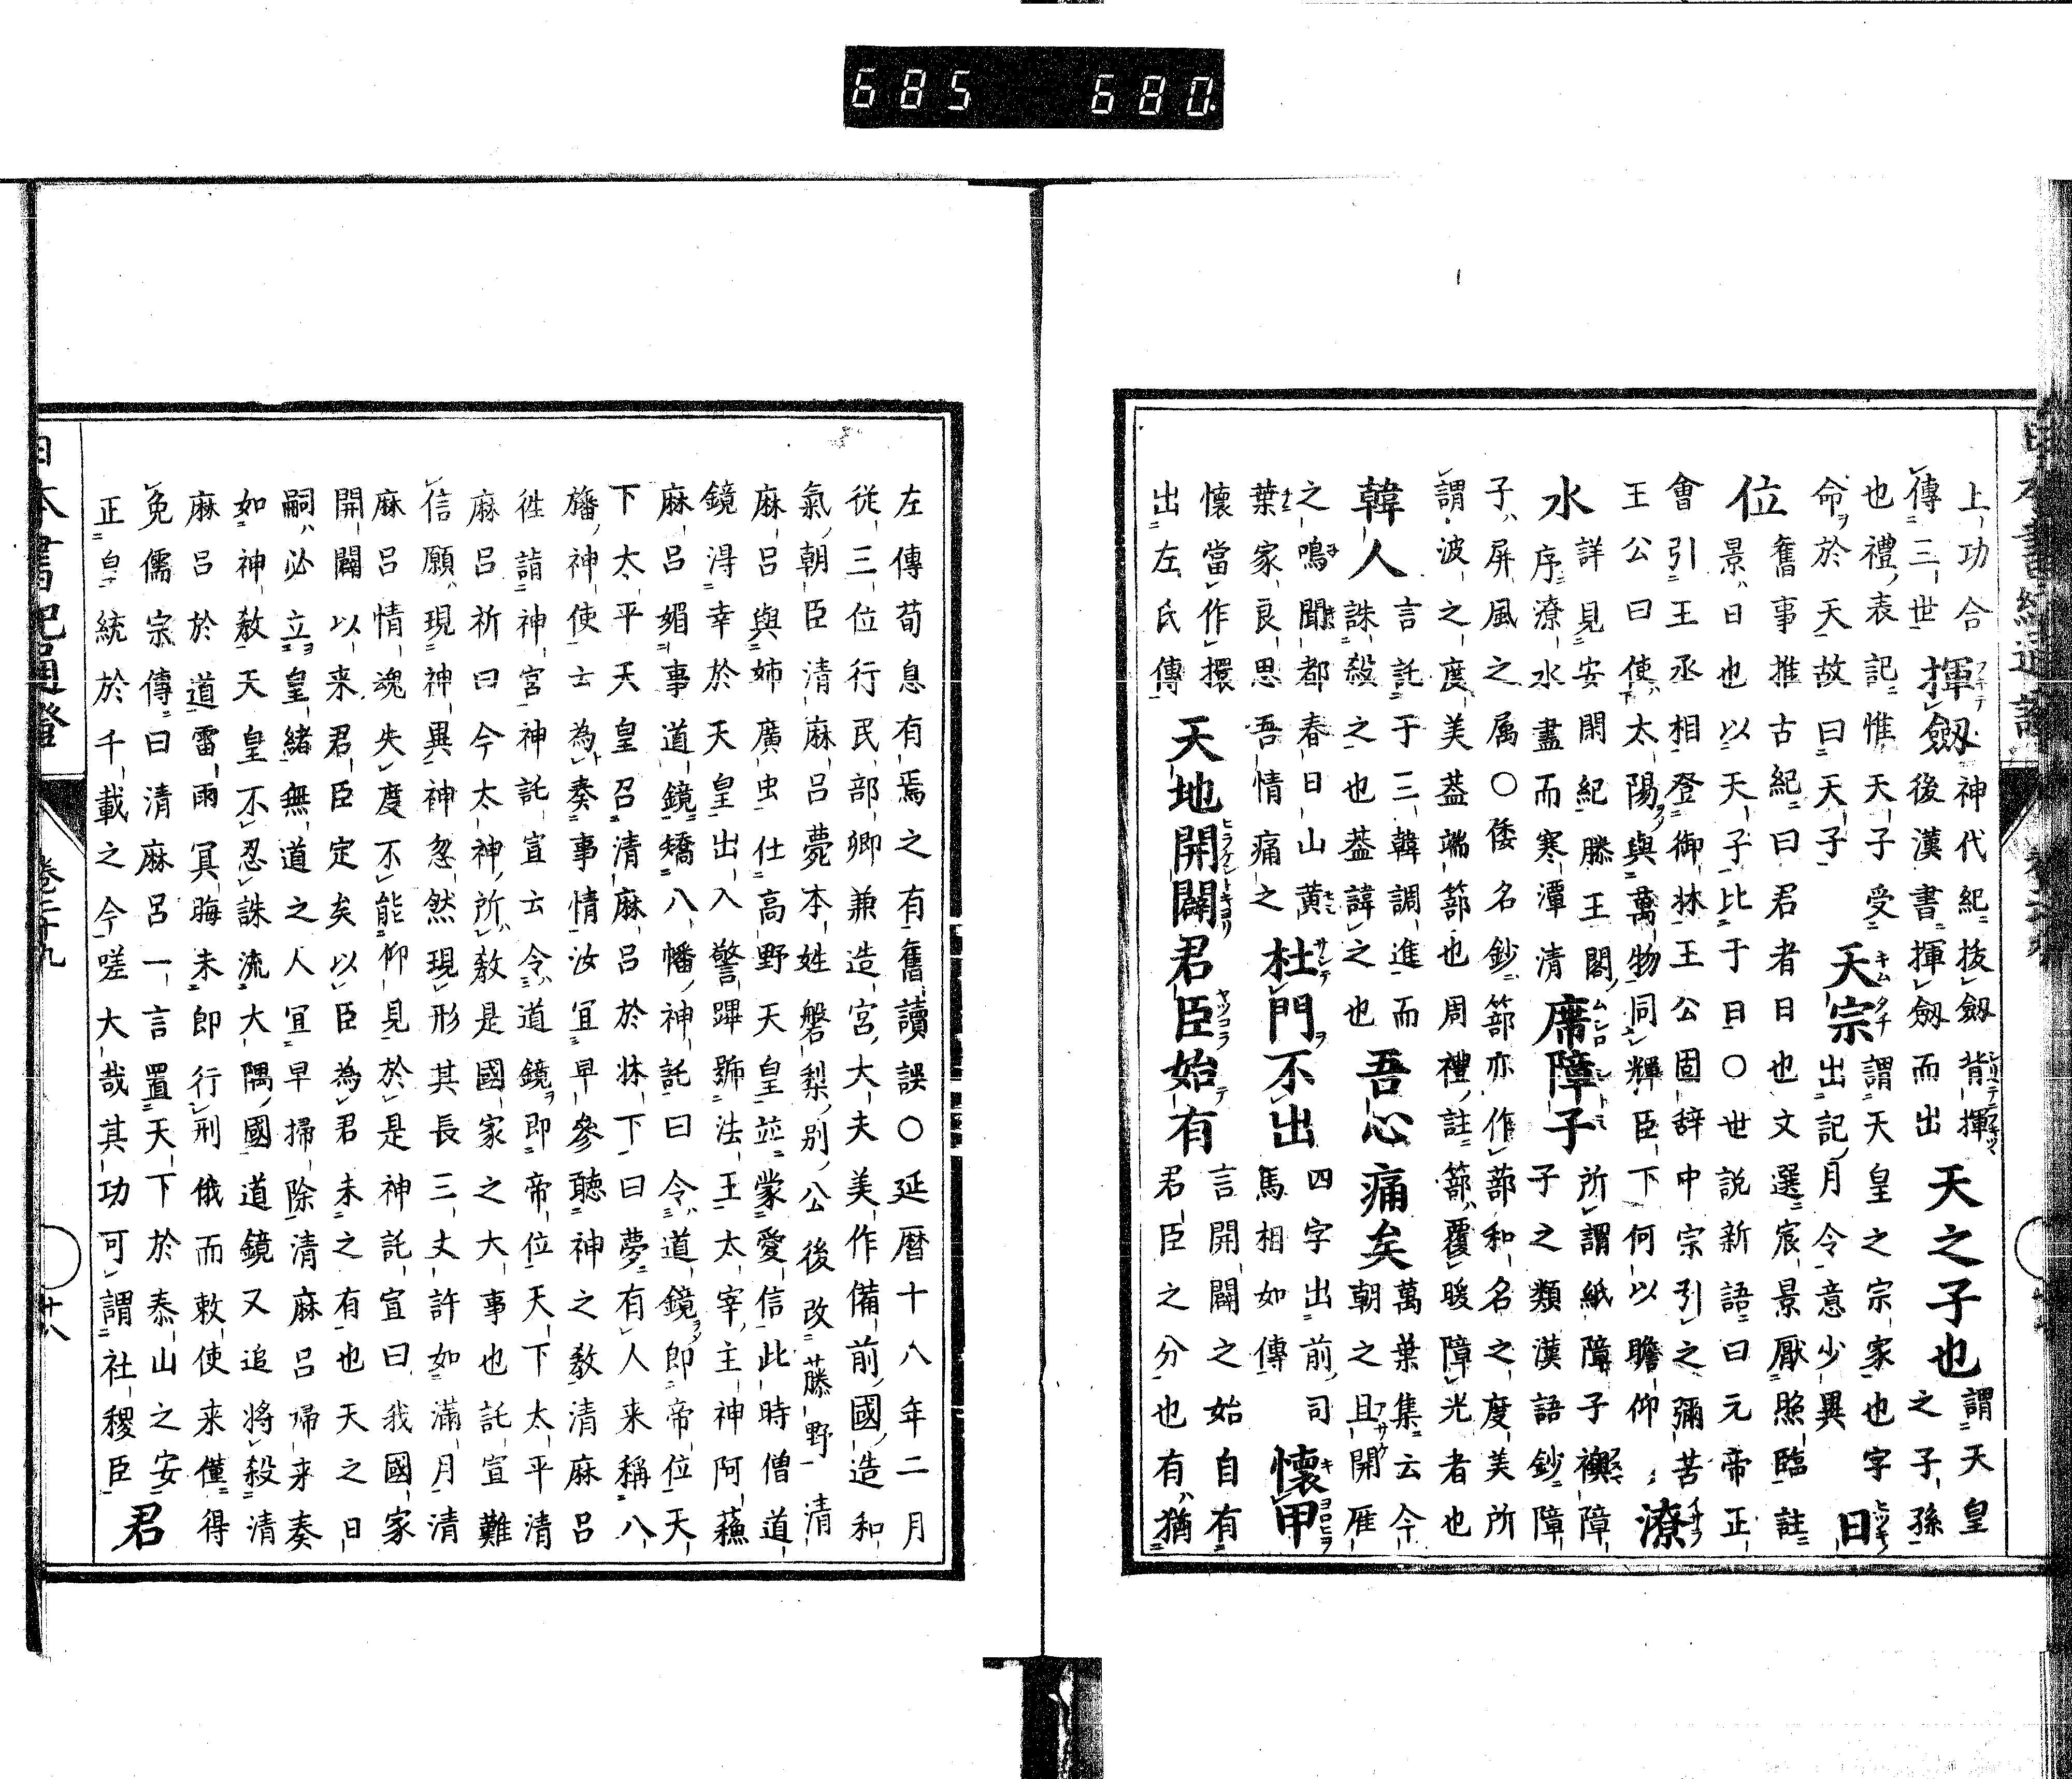 685 680
上功合
傳三世
揮劔
神代紀抜劔背揮
後漢書揮劔而出
天之子也
謂天皇
之子孫
也禮表記惟天子受
命於天故曰天子
天宗
謂天皇之宗家也字
出記月令意少異
日
位
舊事推古紀曰君者日也文選宸景厭照臨註
景日也以天子比于日○世説新語曰元帝正
會引王丞相登御牀王公固辞中宗引之彌苦
王公曰使太陽與萬物同輝臣下何以瞻仰
潦
水
詳見安閑紀滕王閣
序潦水盡而寒潭清
席障子
所謂紙障子襖障
子之類漢語鈔障
子屏風之属○倭名鈔篰亦作蔀和名之度美所
謂波之度美葢端篰也周禮註篰覆暖障光者也
韓人
言託于三韓調進而
誅殺之也葢諱之也
吾心痛矣
萬葉集云今
朝之且開雁
之鳴聞都春日山黄
葉家良思吾情痛之
杜門不出
四字出前司
馬相如傳
懐甲
懐當作擐
出左氏傳
天地開闢君臣始有
言開闢之始自有
君臣之分也有猶
左傳荀息有焉之有舊讀誤○延暦十八年二月
従三位行民部卿兼造宮大夫美作備前國造和
氣朝臣清麻呂薨本姓磐梨別公後改藤野清
麻呂與姉廣虫仕高野天皇並蒙愛信此時僧道
鏡得幸於天皇出入警蹕號法王太宰主神阿蘓
麻呂媚事道鏡矯八幡神託曰令道鏡即帝位天
下太平天皇召清麻呂於牀下曰夢有人来稱八
旛神使士為奏事情汝冝早參聽神之教清麻呂
徃詣神宮神託宣云令道鏡即帝位天下太平清
麻呂祈曰今太神所教是國家之大事也託宣難
信願現神異神忽然現形其長三丈許如滿月清
麻呂情魂失度不能仰見於是神託宣曰我國家
開闢以来君臣定矣以臣為君未之有也天之日
嗣必立皇緒無道之人冝早掃除清麻呂帰来奏
如神教天皇不忍誅流大隅國道鏡又追將殺清
麻呂於道雷雨冥晦未即行刑俄而敕使来僅得
免儒宗傳曰清麻呂一言置天下於泰山之安
正皇統於千載之今嗟大哉其功可謂社稷臣
君
日本書紀通證
卷三十九
廿八